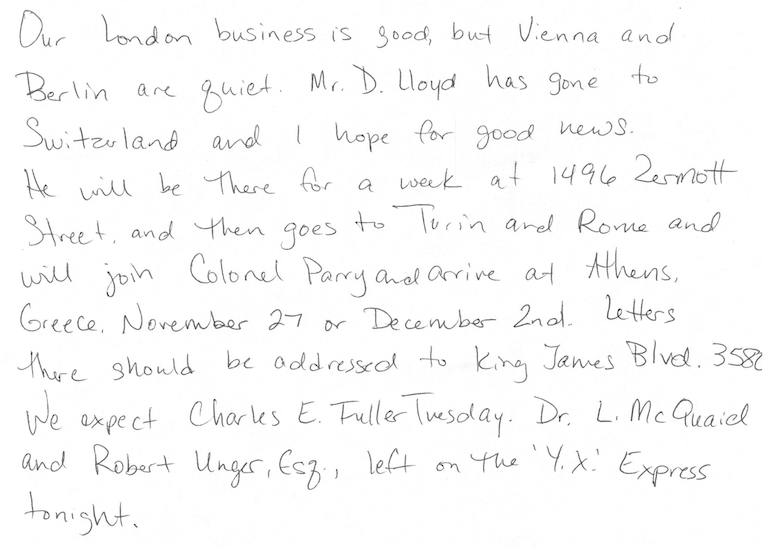 Our London business is good, but Vienna and
Berlin are quiet. Mr. D. Lloyd has gone to
Switzerland and I hope for good news.
He will be there for a week at 1496 Zermott
Street, and then goes to Turin and Rome and
will join Colonel Parry and arrive at Athens,
Greece, November 27 or December 2nd. Letters
there should be addressed to King James Blvd. 3580
We expect Charles E. Fuller Tuesday. Dr. L. McQuaid
and Robert Unger, Esq., left on the 'Y.X.' Express
tonight.